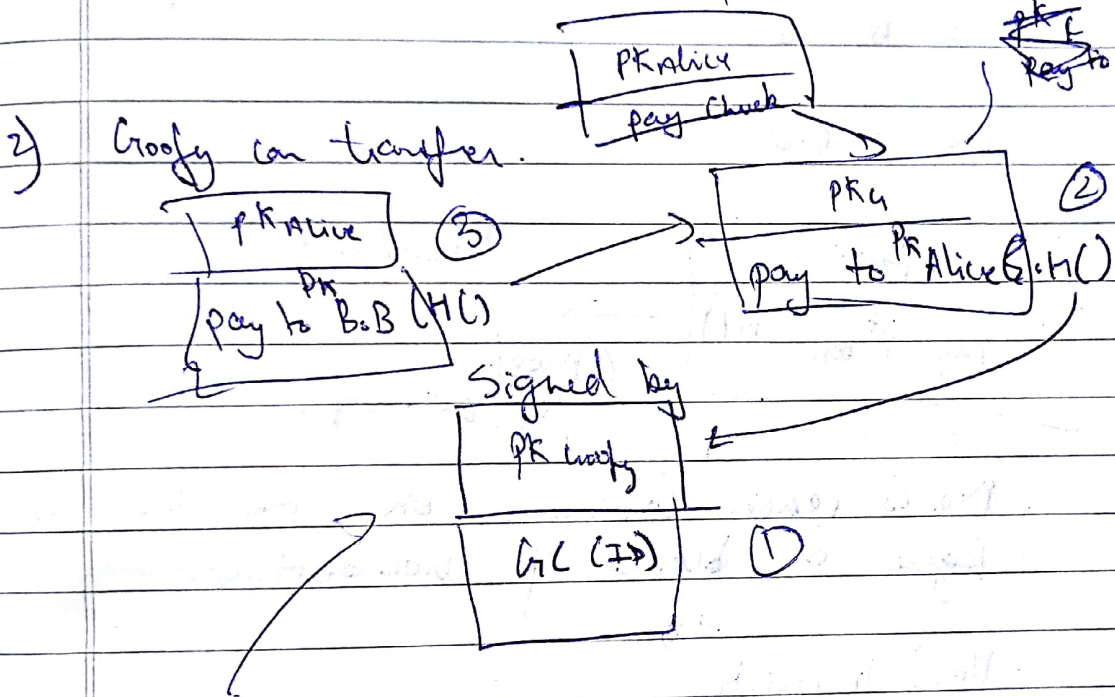 PK Alice
pay Chuck
2) Goofy can transfer.
PK Alice
③
pay to PK BoB (H()
PKG
②
pay to PK Alice : H()
Signed by
PK Goofy
GC (ID)
①